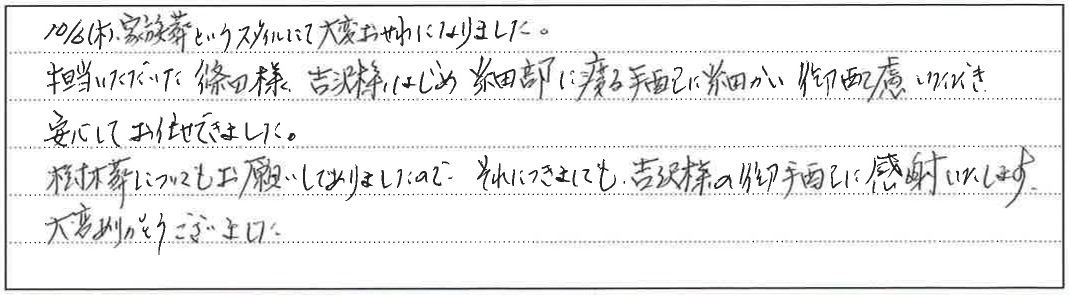 10/6(木)、家族葬というスタイルにて大変おせわになりました。
担当いただいた篠田様、吉沢様、はじめ細部に渡る手配に細かい御配慮いただき
安心してお任せできました。
樹木葬についてもお願いしてありましたので、それにつきましても、吉沢様の御手配に感謝いたします。
大変ありがとうございました